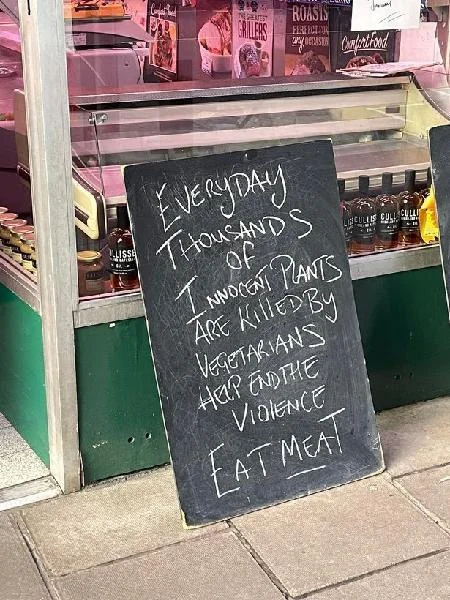 Comfort Food
GRILLERS
ROASTS
Comfort Food
EVERYDAY
THOUSANDS
OF
INNOCENT PLANTS
ARE KILLED BY
VEGETARIANS
HELP END THE
VIOLENCE
EAT MEAT